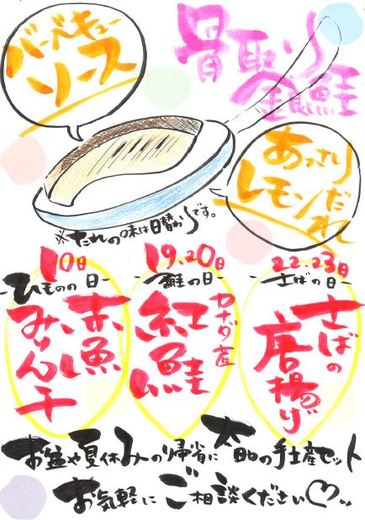 骨取り
銀鮭
バーベキュー
ソース
あっさり
レモンだれ
※たれの味は日替わりです。
10日
-ひものの日-
赤魚
みりん干
19.20日
-鮭の日-
カナダ産
紅鮭
22.23日
-さばの日-
さばの
唐揚げ
お盆や夏休みの帰省に
の手土産セット
お気軽にご相談ください♡